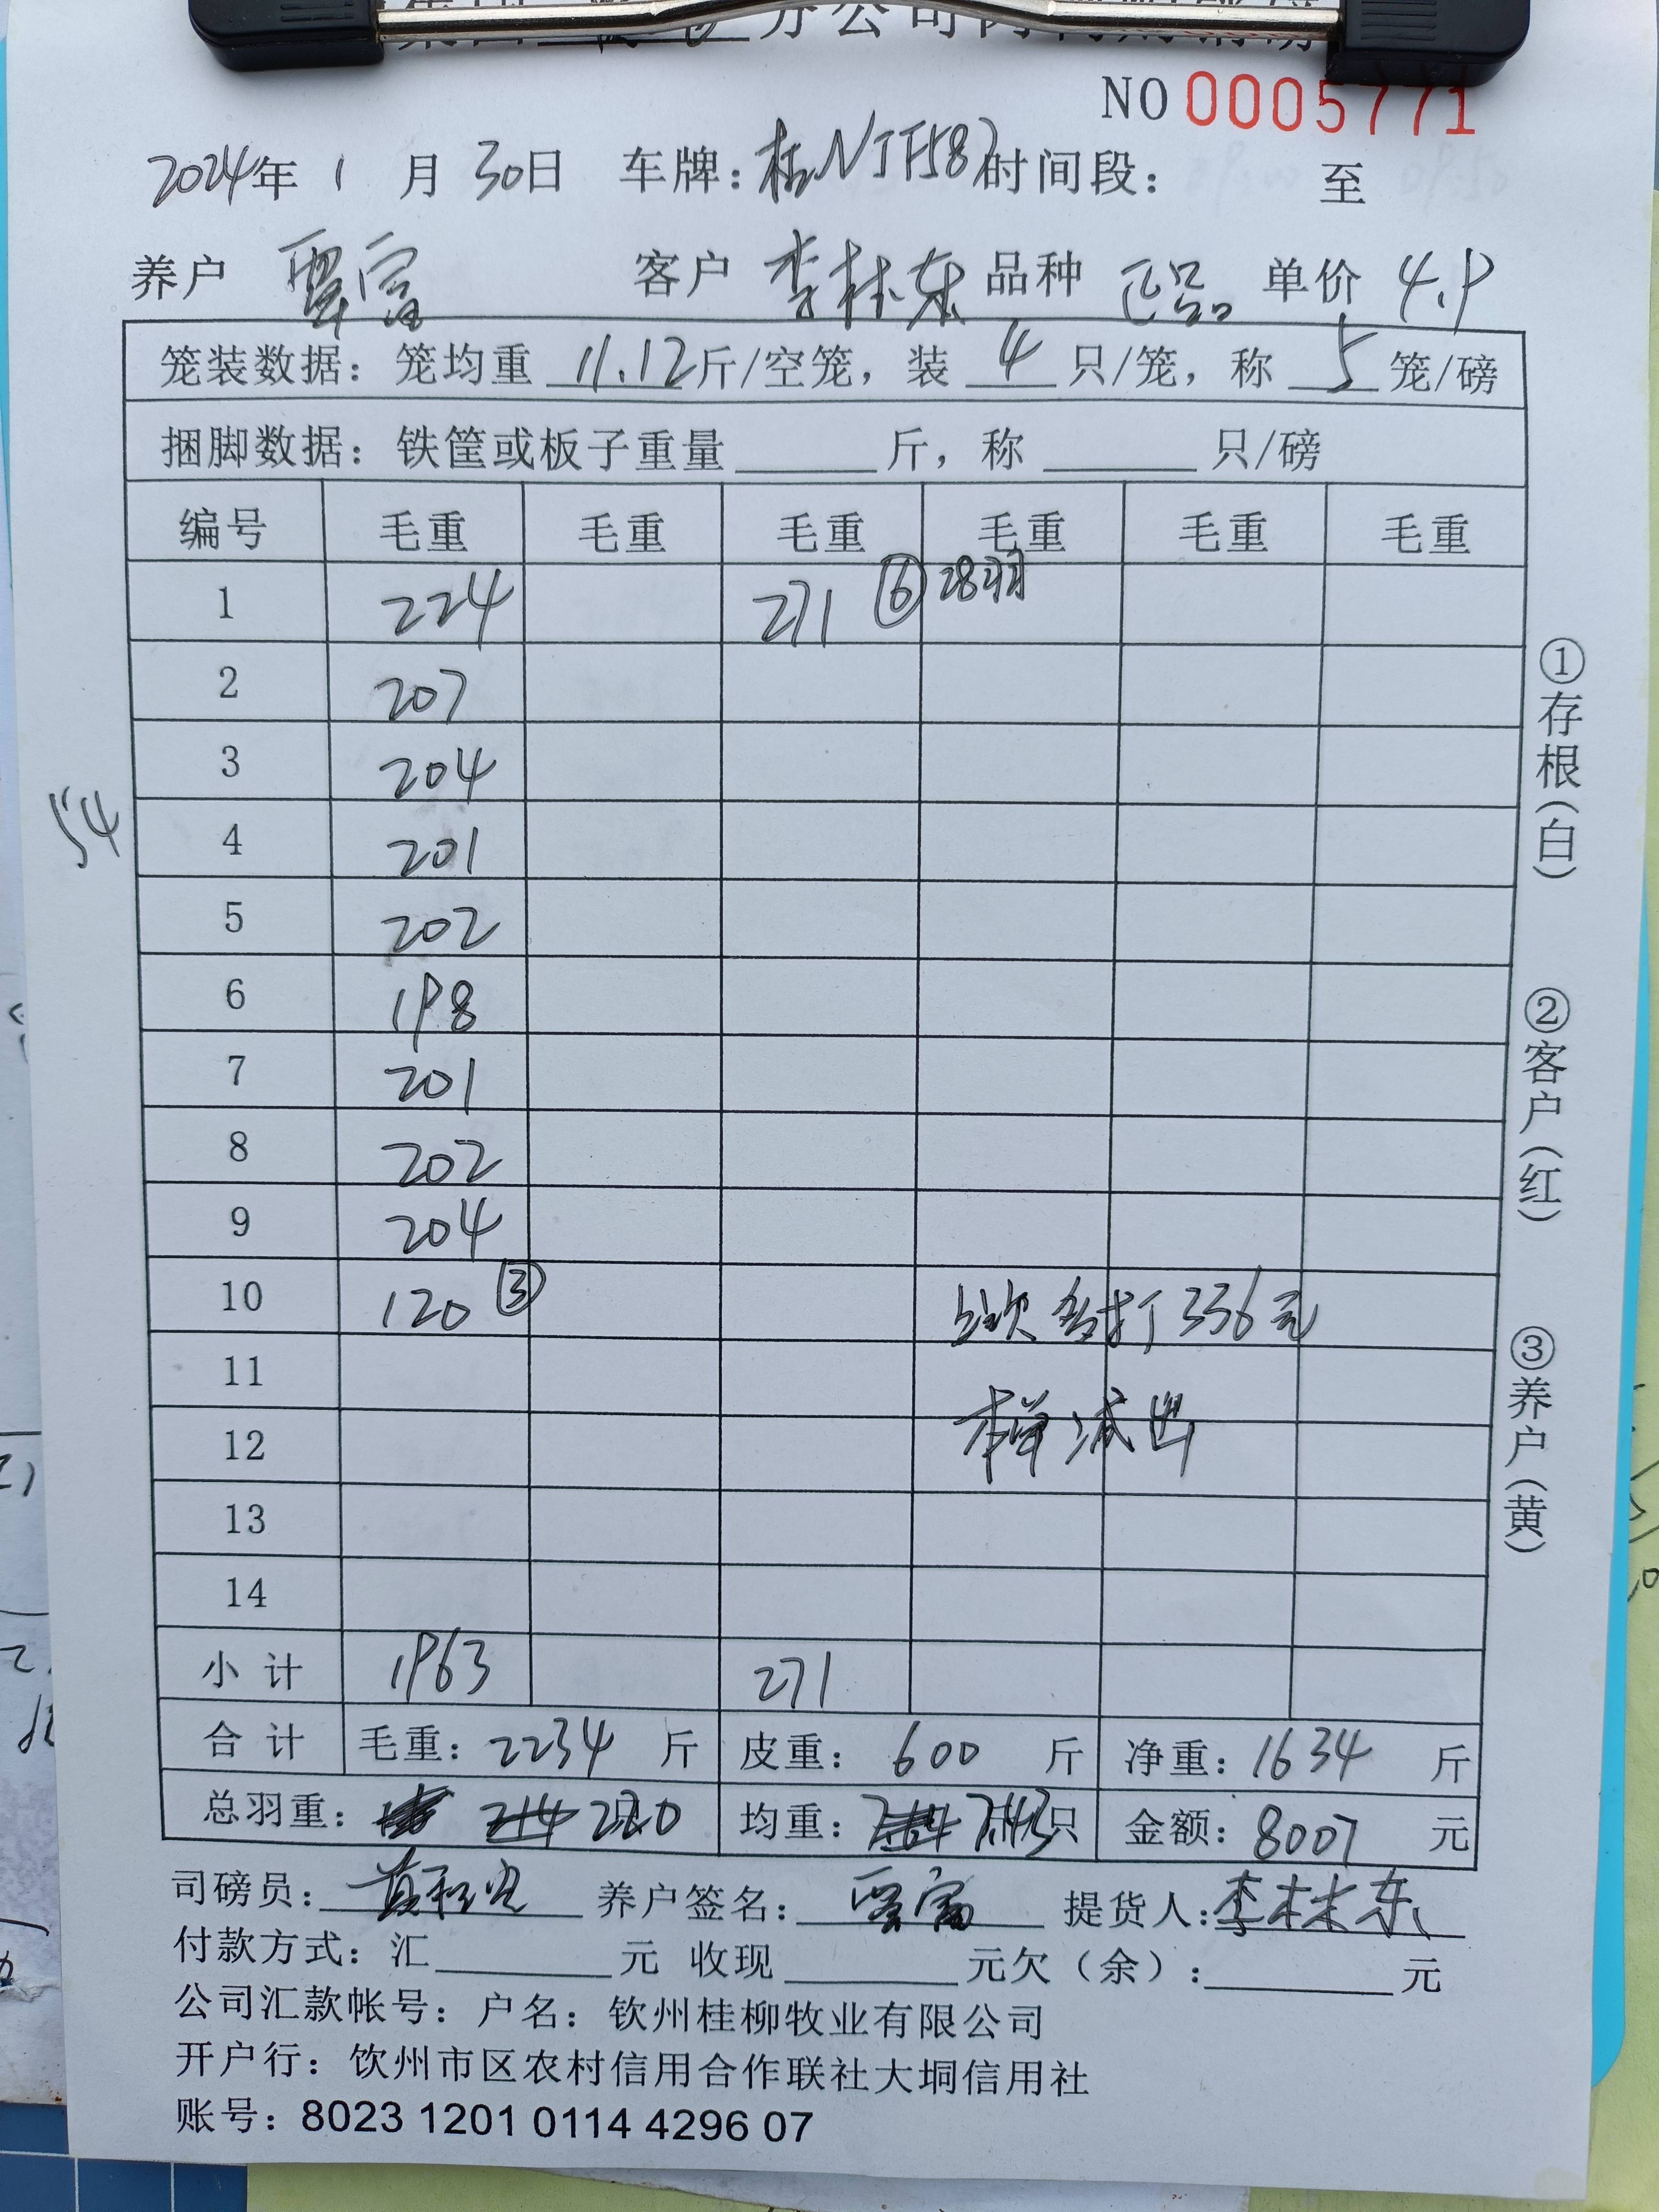 分公司
NO 0005771
2024年 1 月 30日 车牌:桂NJF587 时间段: 至
养户 覃富 客户 李林东 品种 正品 单价 4.9
笼装数据: 笼均重 11.12 斤/空笼, 装 4 只/笼, 称 5 笼/磅
捆脚数据: 铁筐或板子重量 斤, 称 只/磅
编号 毛重 毛重 毛重 毛重 毛重 毛重
1 224 271 ⑥ 28羽
2 207
3 204
54
4 201
5 202
6 198
7 201
8 202
9 204
10 120 ③ 上次多打336元
11
12 本单减出
13
14
小 计 1963 271
合 计 毛重: 2234 斤 皮重: 600 斤 净重: 1634 斤
总羽重: 220 均重: 7.43 只 金额: 8007 元
司磅员: 养户签名: 覃富 提货人: 李林东
付款方式: 汇 元 收现 元欠(余): 元
公司汇款帐号: 户名: 钦州桂柳牧业有限公司
开户行: 饮州市区农村信用合作联社大垌信用社
账号: 8023 1201 0114 4296 07
①存根(白)
②客户(红)
③养户(黄)